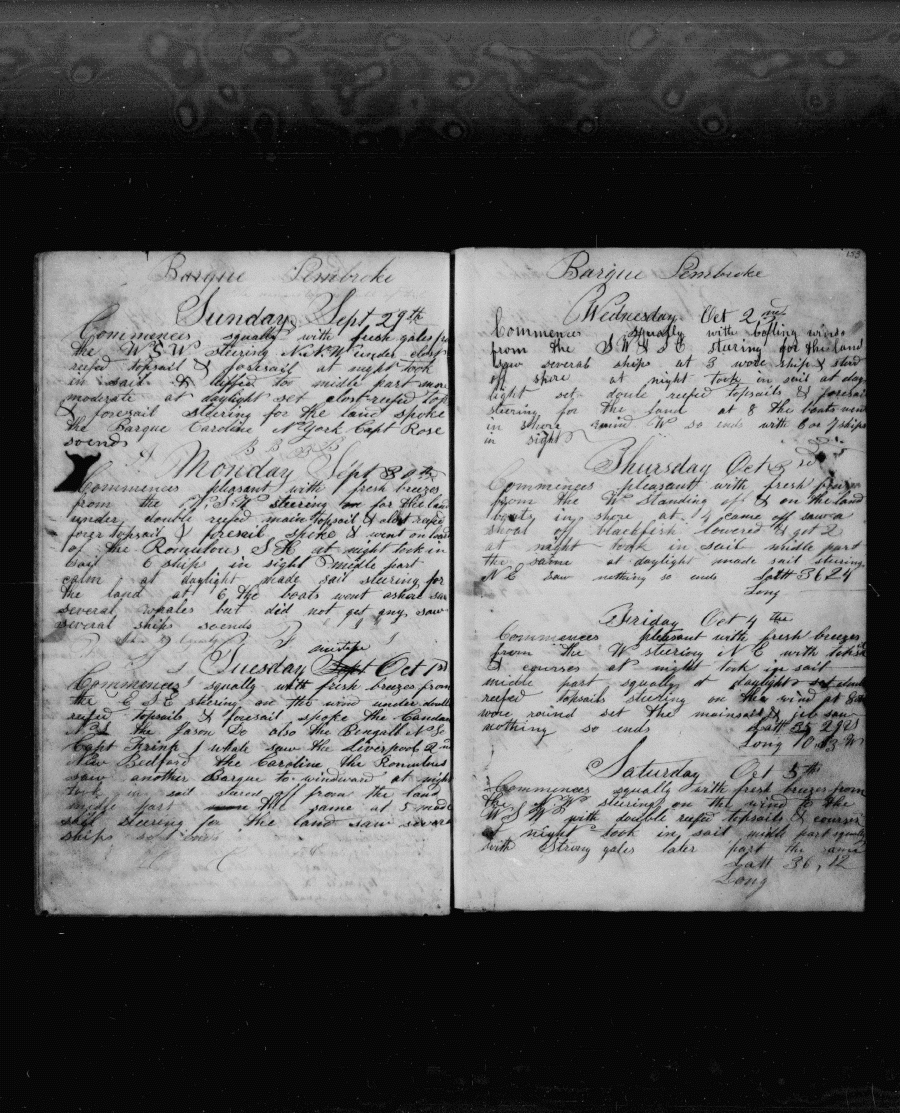 Barque Pembroke
Sunday Sept 29th
Commences squally with fresh gales
the W S W steering N N W under close
reefed topsail & foresail at night took
in sail middle part more
moderate at daylight set close reefed top
& foresail steering for the land spoke
the Barque Caroline N York Capt Rose
so ends
Monday Sept 30th
Commences pleasant with fresh breezes
from the steering on for the land
under double reefed main topsail & close reefed
fore topsail & foresail spoke & went on board
of the Romulous S H at night took in
Sail 6 ships in sight middle part
calm at daylight made sail steering for
the land at 6 the boats went ashore saw
several whales but did not get any saw
several ships so ends
Tuesday Oct 1st
Commences squally with fresh breezes from
the E S E steering on the wind under double
reefed topsails & foresail spoke the
N L the Jason Do also the Bengall N L
Capt 1 whale saw the Liverpool 2nd
New Bedford the Caroline the Romulous
saw another Barque to windward at night
took in sail stered off from the land
middle part the same at 5 made
sail steering for the land saw several
ships so ends
155
Barque Pembroke
Wednesday Oct 2nd
Commences squally with bafling winds
from the S W & S E staring for the land
saw several ships at 3 wore ship & stood
off shore at night took in sail at day
light set doule reefed topsails & foresail
steering for the land at 8 the boats went
in shore wind W so ends with 6 or 7 ships
in sight
Thursday Oct 3rd
Commences pleasant with fresh breezes
from the W Standing of & on the land
boats in shore at 4 came off saw a
shoal blackfish lowered & got 2
at night took in sail middle part
the same at daylight made sail steering
N E saw nothing so ends Latt 36 24
Long
Friday Oct 4 the
Commences pleasant with fresh breezes
from the W steering N E with
& courses at night took in sail
middle part squally at daylight set double
reefed topsails steering on the wind at 8
wore round set the mainsail & jib saw
nothing so ends Latt 35 29
Long 10 W
Saturday Oct 5th
Commences squally with fresh breezes from
the N W steering on the wind to the
W S W with double reefed topsails & courses
at night took in sail midle part squally
with Strong gales later part the same
Latt 36,12
Long